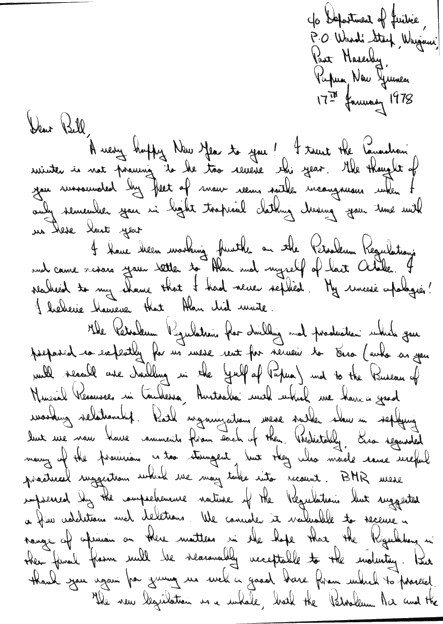 c/o Department of Justice,
P.O. Wards Strip, Waigani,
Port Moresby,
Papua New Guinea
17th January 1978
Dear Bill,
A very happy New Year to you! I trust the Canadian
winter is not proving to be too severe this year. The thought of
you surrounded by feet of snow seems rather incongruous when I
only remember you in light tropical clothing during your time with
us here last year
I have been working further on the Petroleum Regulations
and came across your letter to Alan and myself of last October. I
realised to my shame that I had never replied. My sincere apologies!
I believe however that Alan did write.
The Petroleum Regulations for drilling and production which you
prepared so expertly for us were sent for review to Esso (who as you
will recall are drilling in the Gulf of Papua) and to the Bureau of
Mineral Resources in Canberra, Australia with which we have a good
working relationship. Both organizations were rather slow in replying
but we now have comments from each of them. Predictably, Esso regarded
many of the provisions as too stringent but they also made some useful
practical suggestions which we may take into account. BMR were
impressed by the comprehensive nature of the Regulations but suggested
a few additions and deletions. We consider it valuable to receive a
range of opinion on these matters in the hope that the Regulations in
their final form will be reasonably acceptable to the industry. But
thank you again for giving us such a good base from which to proceed.
The new legislation as a whole, both the Petroleum Act and the